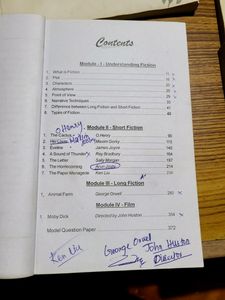 Contents
Module - I - Understanding Fiction
1. What is Fiction
2. Plot
3. Characters
4. Atmosphere
5. Point of View
6. Narrative Techniques
7. Difference between Long Fiction and Short Fiction
8. Types of Fiction
O Henry
Module II - Short Fiction
1. The Cactus O.Henry 86
Maxim Gorky
3. Eveline James Joyce
4. A Sound of Thunder Ray Bradbury
5. The Letter Sally Morgan 197
6. The Homecoming 234
The Paper Menagerie Ken Liu
Module III - Long Fiction
Animal Farm George Orwell 280
Module IV - Film
Moby Dick Directed by John Huston 354
Model Question Paper 372
Ken Liu
George Orwel
John Huston
Director